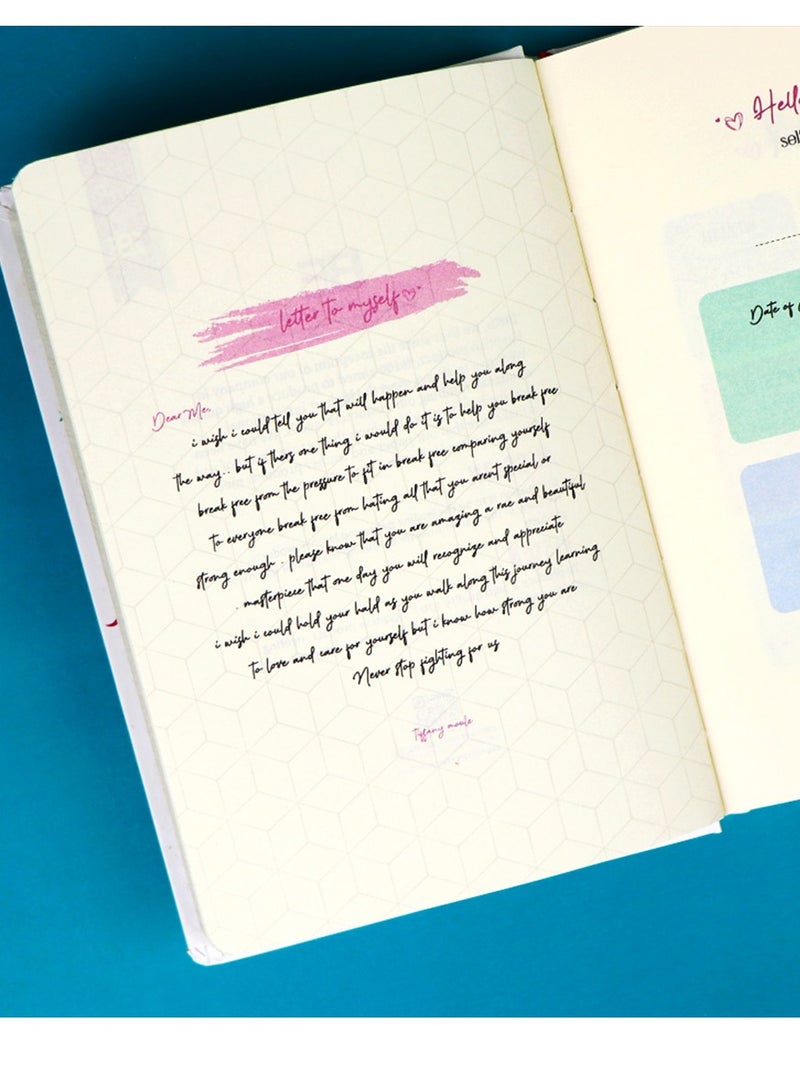 letter to myself
Dear Me,
i wish i could tell you that will happen and help you along
the way.. but if thers one thing i would do it is to help you break free
break free from the pressure to fit in break free comparing yourself
to everyone break free from hating all that you arent special or
strong enough . please know that you are amazing a rae and beautiful
. masterpiece that one day you will recognize and appreciate
i wish i could hold your hald as you walk along this journey learning
to love and care for yourself but i know how strong you are
Never stop fighting for us
Tiffany moule
Hell
sel
Date of